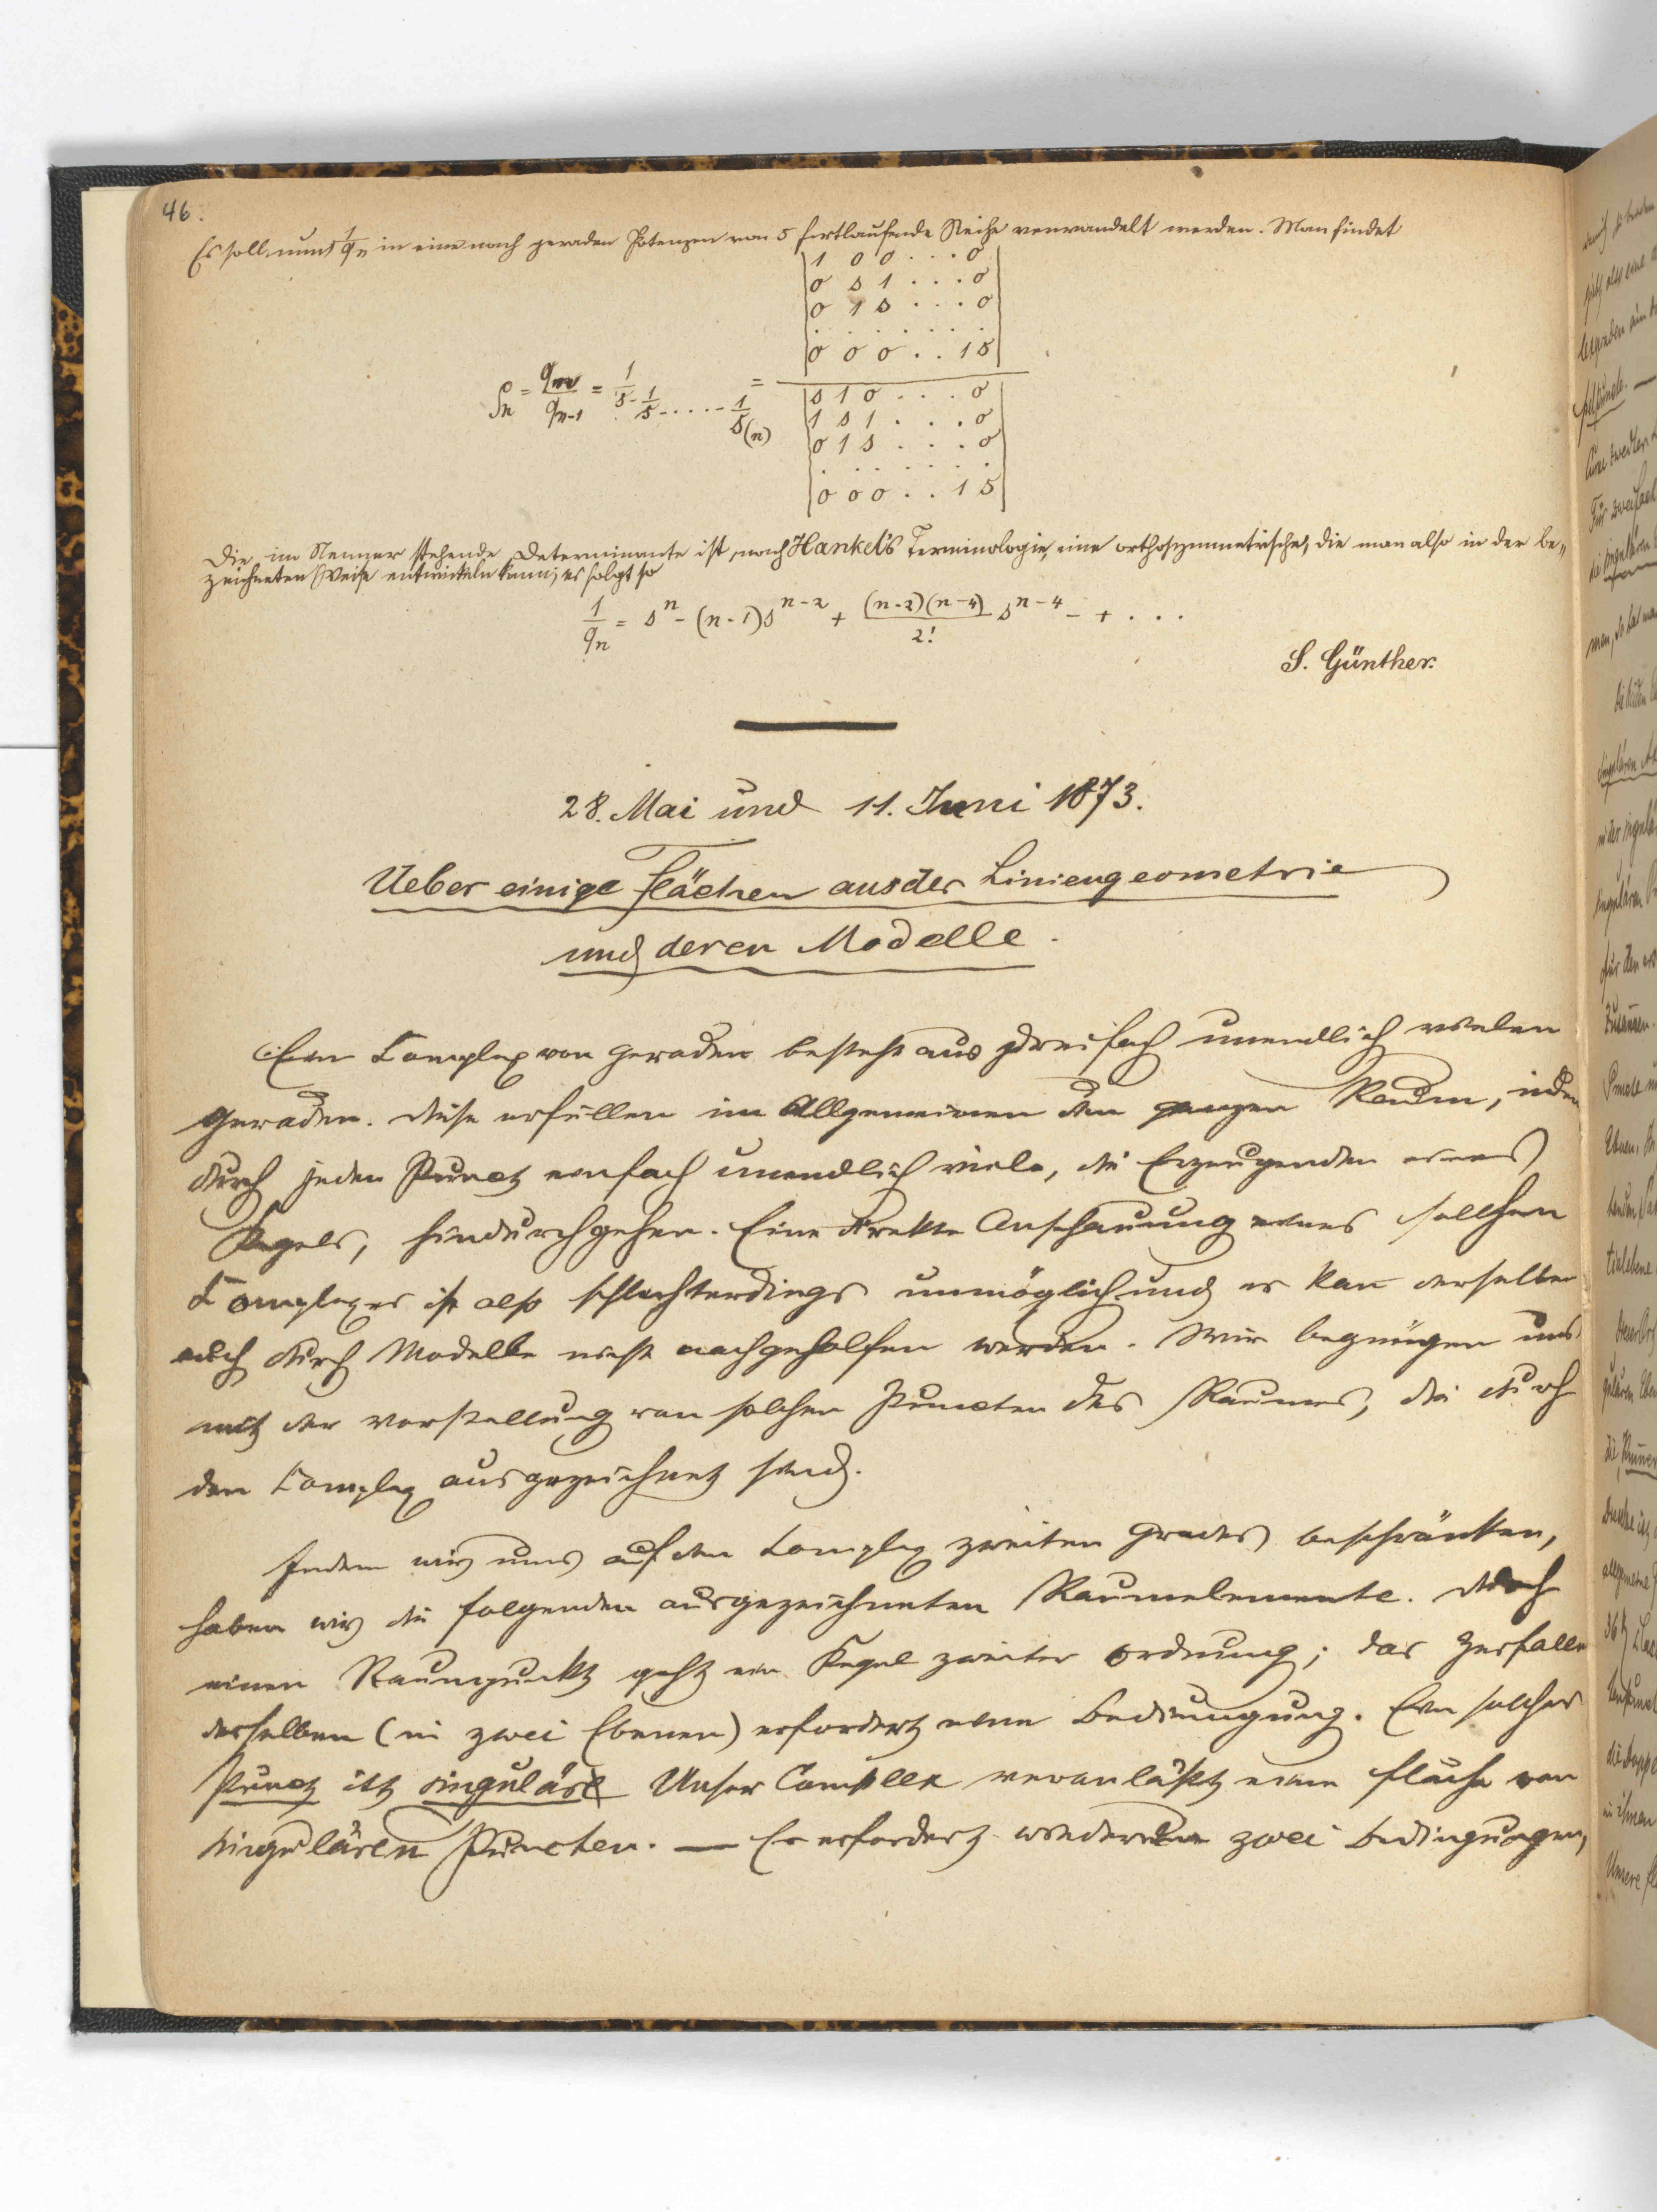 46.
Es soll nun 1/qn in eine nach geraden Potenzen von s fortlaufende Reihe verwandelt werden. Man findet
1 0 0 . . . 0
0 s 1 . . . 0
0 1 s . . . 0
. . . . . . .
0 0 0 . . 1 s
ρn = qn/qn-1 = 1/s - 1/s - . . . . - 1/s(n) =
s 1 0 . . . 0
1 s 1 . . . 0
0 1 s . . . 0
. . . . . . .
0 0 0 . . 1 s
Die im Nenner stehende Determinante ist, nach Hankel's Terminologie, eine orthosymmetrische, die man also in der be-
zeichneten Weise entwickeln kann; es folgt so
1/qn = s^n - (n-1)s^n-2 + (n-2)(n-4)/2! s^n-4 - + . . .
S. Günther.
28. Mai und 11. Juni 1873.
Ueber einige Flächen aus der Liniengeometrie
und deren Modelle.
Ein Complex von Geraden besteht aus dreifach unendlich vielen
Geraden. Diese erfüllen im Allgemeinen den ganzen Raum, indem
durch jeden Punct einfach unendlich viele, die Erzeugenden eines
Kegels, hindurchgehen. Eine direkte Anschauung eines sollchen
Complexes ist also schlechterdings unmöglich und es kan derselben
auch durch Modelle nicht nachgeholfen werden. Wir begnügen uns
mit der Vorstellung von solchen Puncten des Raumes, die durch
den Complex ausgezeichnet sind.
Indem wir uns auf den Complex zweiten Grades beschränken,
haben wir die folgenden ausgezeichneten Raumelemente. Durch
einen Raumpunkt geht ein Kegel zweiter Ordnung; das Zerfallen
desselben (in zwei Ebenen) erfordert eine Bedingung. Ein solcher
Punct ist singulär Unser Complex veranlaßt eine Fläche von
singulären Puncten. — Es erfordert wiederum zwei Bedingungen,